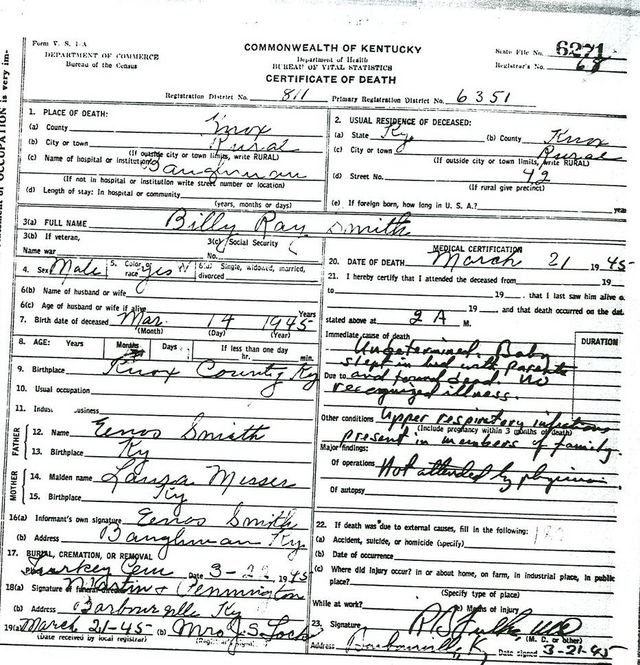 Form V. S. 1-A
DEPARTMENT OF COMMERCE
Bureau of the Census
COMMONWEALTH OF KENTUCKY
Department of Health
BUREAU OF VITAL STATISTICS
CERTIFICATE OF DEATH
State File No. 6271
Registrar's No. 68
Registration District No. 811 Primary Registration District No. 6351
OCCUPATION is very im-
1. PLACE OF DEATH:
(a) County Knox
(b) City or town Rural
(If outside city or town limits, write RURAL)
(c) Name of hospital or institution: Baughman
(If not in hospital or institution write street number or location)
(d) Length of stay: In hospital or community
(years, months or days)
2. USUAL RESIDENCE OF DECEASED:
(a) State Ky. (b) County Knox
(c) City or town Rural
(If outside city or town limits, write RURAL)
(d) Street No. 42
(If rural give precinct)
(e) If foreign born, how long in U. S. A.? years
3(a) FULL NAME Billy Ray Smith
3(b) If veteran,
Name war
3(c) Social Security
No.
4. Sex Male 5. Color or race W 6(a) Single, widowed, married,
divorced
6(b) Name of husband or wife
6(c) Age of husband or wife if alive Years
7. Birth date of deceased Mar. 14 1945
(Month) (Day) (Year)
8. AGE: Years Months Days If less than one day
hr. min.
9. Birthplace Knox County Ky
10. Usual occupation
11. Indus business
FATHER
12. Name Eenos Smith
13. Birthplace Ky
MOTHER
14. Maiden name Laura Messer
15. Birthplace Ky
16(a) Informant's own signature Eenos Smith
(b) Address Baughman Ky
17. BURIAL, CREMATION, OR REMOVAL
Turkey Cem Date 3-22 1945
18(a) Signature of funeral director Martin & Pennington
(b) Address Barbourville Ky
19(a) March 21-45 (b) Mrs. J. S. Lock
(Date received by local registrar) (Registrar's signature)
MEDICAL CERTIFICATION
20. DATE OF DEATH March 21 1945
21. I hereby certify that I attended the deceased from 19
to 19 , that I last saw him alive o
19 , and that death occurred on the dat
stated above at 2 A M.
Immediate cause of death DURATION
Undetermined. Baby
slept in bed with parents
Due to and found dead. No
recognized illness.
Other conditions Upper respiratory infections
(Include pregnancy within 3 months of death)
present in members of family.
Major findings:
Of operations Not attended by physician.
Of autopsy
22. If death was due to external causes, fill in the following:
(a) Accident, suicide, or homicide (specify)
(b) Date of occurrence
(c) Where did injury occur? in or about home, on farm, in industrial place, in public
place?
(Specify type of place)
While at work? (e) Means of injury
23. Signature
(M. D. or other)
Address Barbourville, Ky Date signed 3-21-45